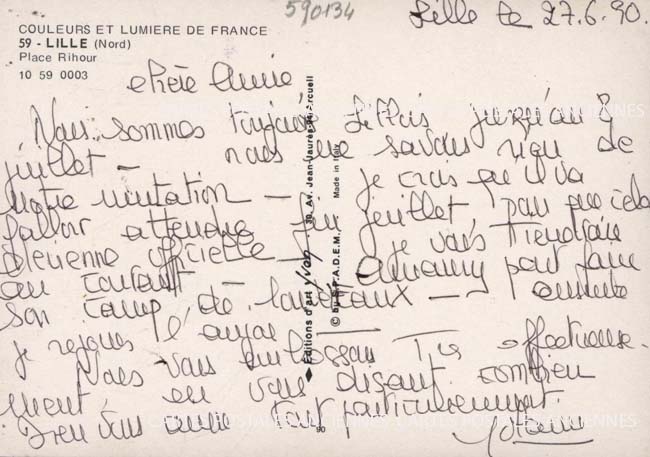 590134
COULEURS ET LUMIERE DE FRANCE
59 - LILLE (Nord)
Place Rihour
10 59 0003
Lille le 27.6.90.
chère Annie
Nous sommes toujours Lillois jusqu'au 8
juillet — nous ne savons rien de
notre mutation — je crois qu'il va
falloir attendre fin juillet, pour que cela
devienne officielle — je vais
au courant — Annemy pour faire
son camp de — ensuite
je rejoins
Nous vous embrassons Très affectueuse-
ment en vous disant combien
Dieu vous aime Tout particulièrement.
Editions d'art yvon - 30, Av. Jean-Jaurès
© by S.P.A.D.E.M. Made in
90
CARTES POSTALES ANCIENNES